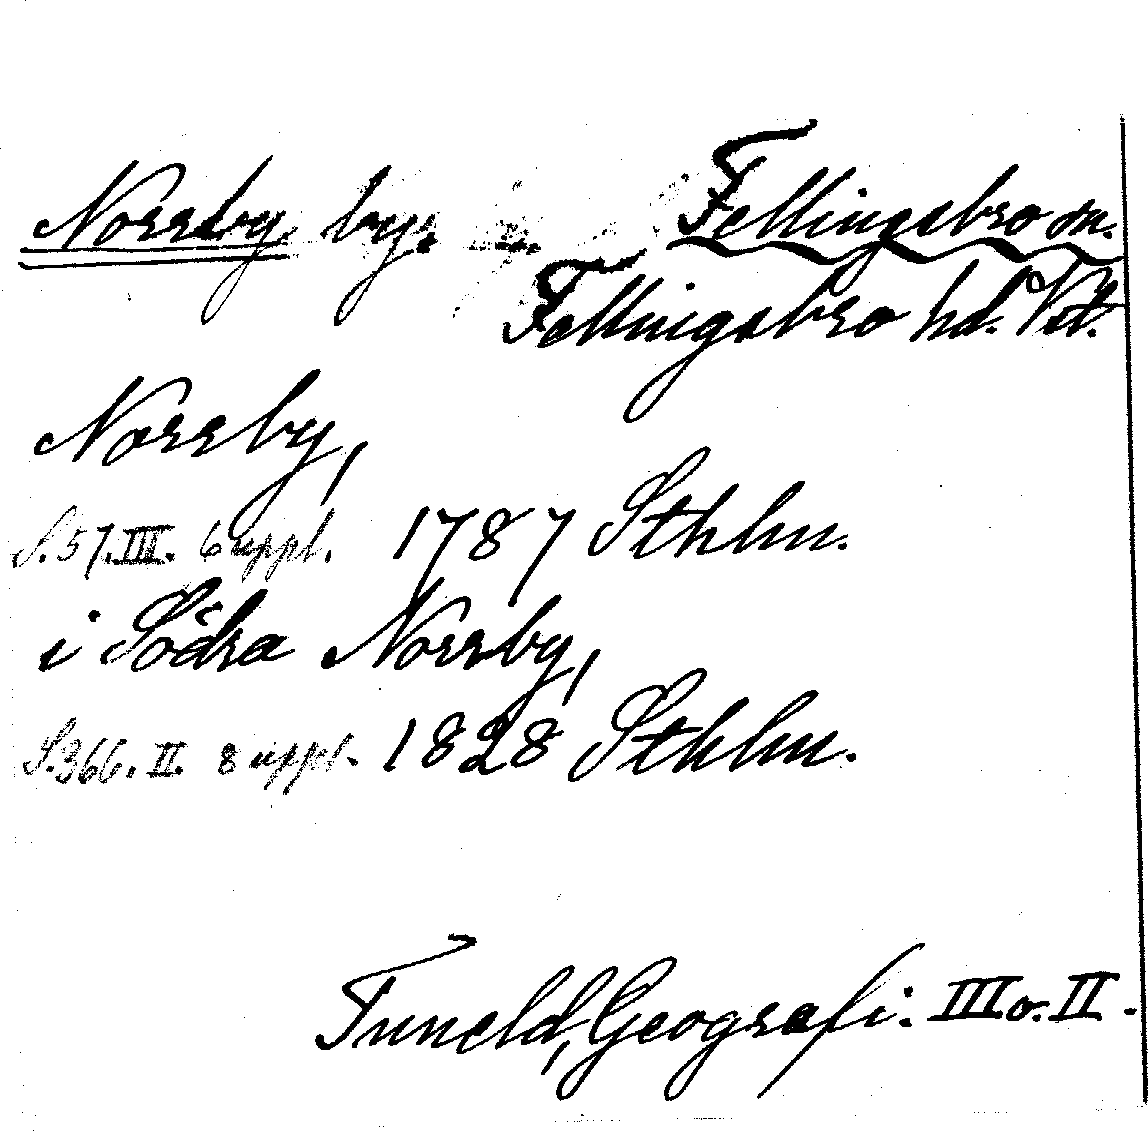 Norrby by. Fellingsbro sn.
Fellingsbro hd. Vstl.
Norrby,
S.57.III. 6 uppl. 1787 Sthlm.
i Södra Norrby,
S.366.II. 8 uppl. 1828 Sthlm.
Tuneld, Geografi. III o. II.